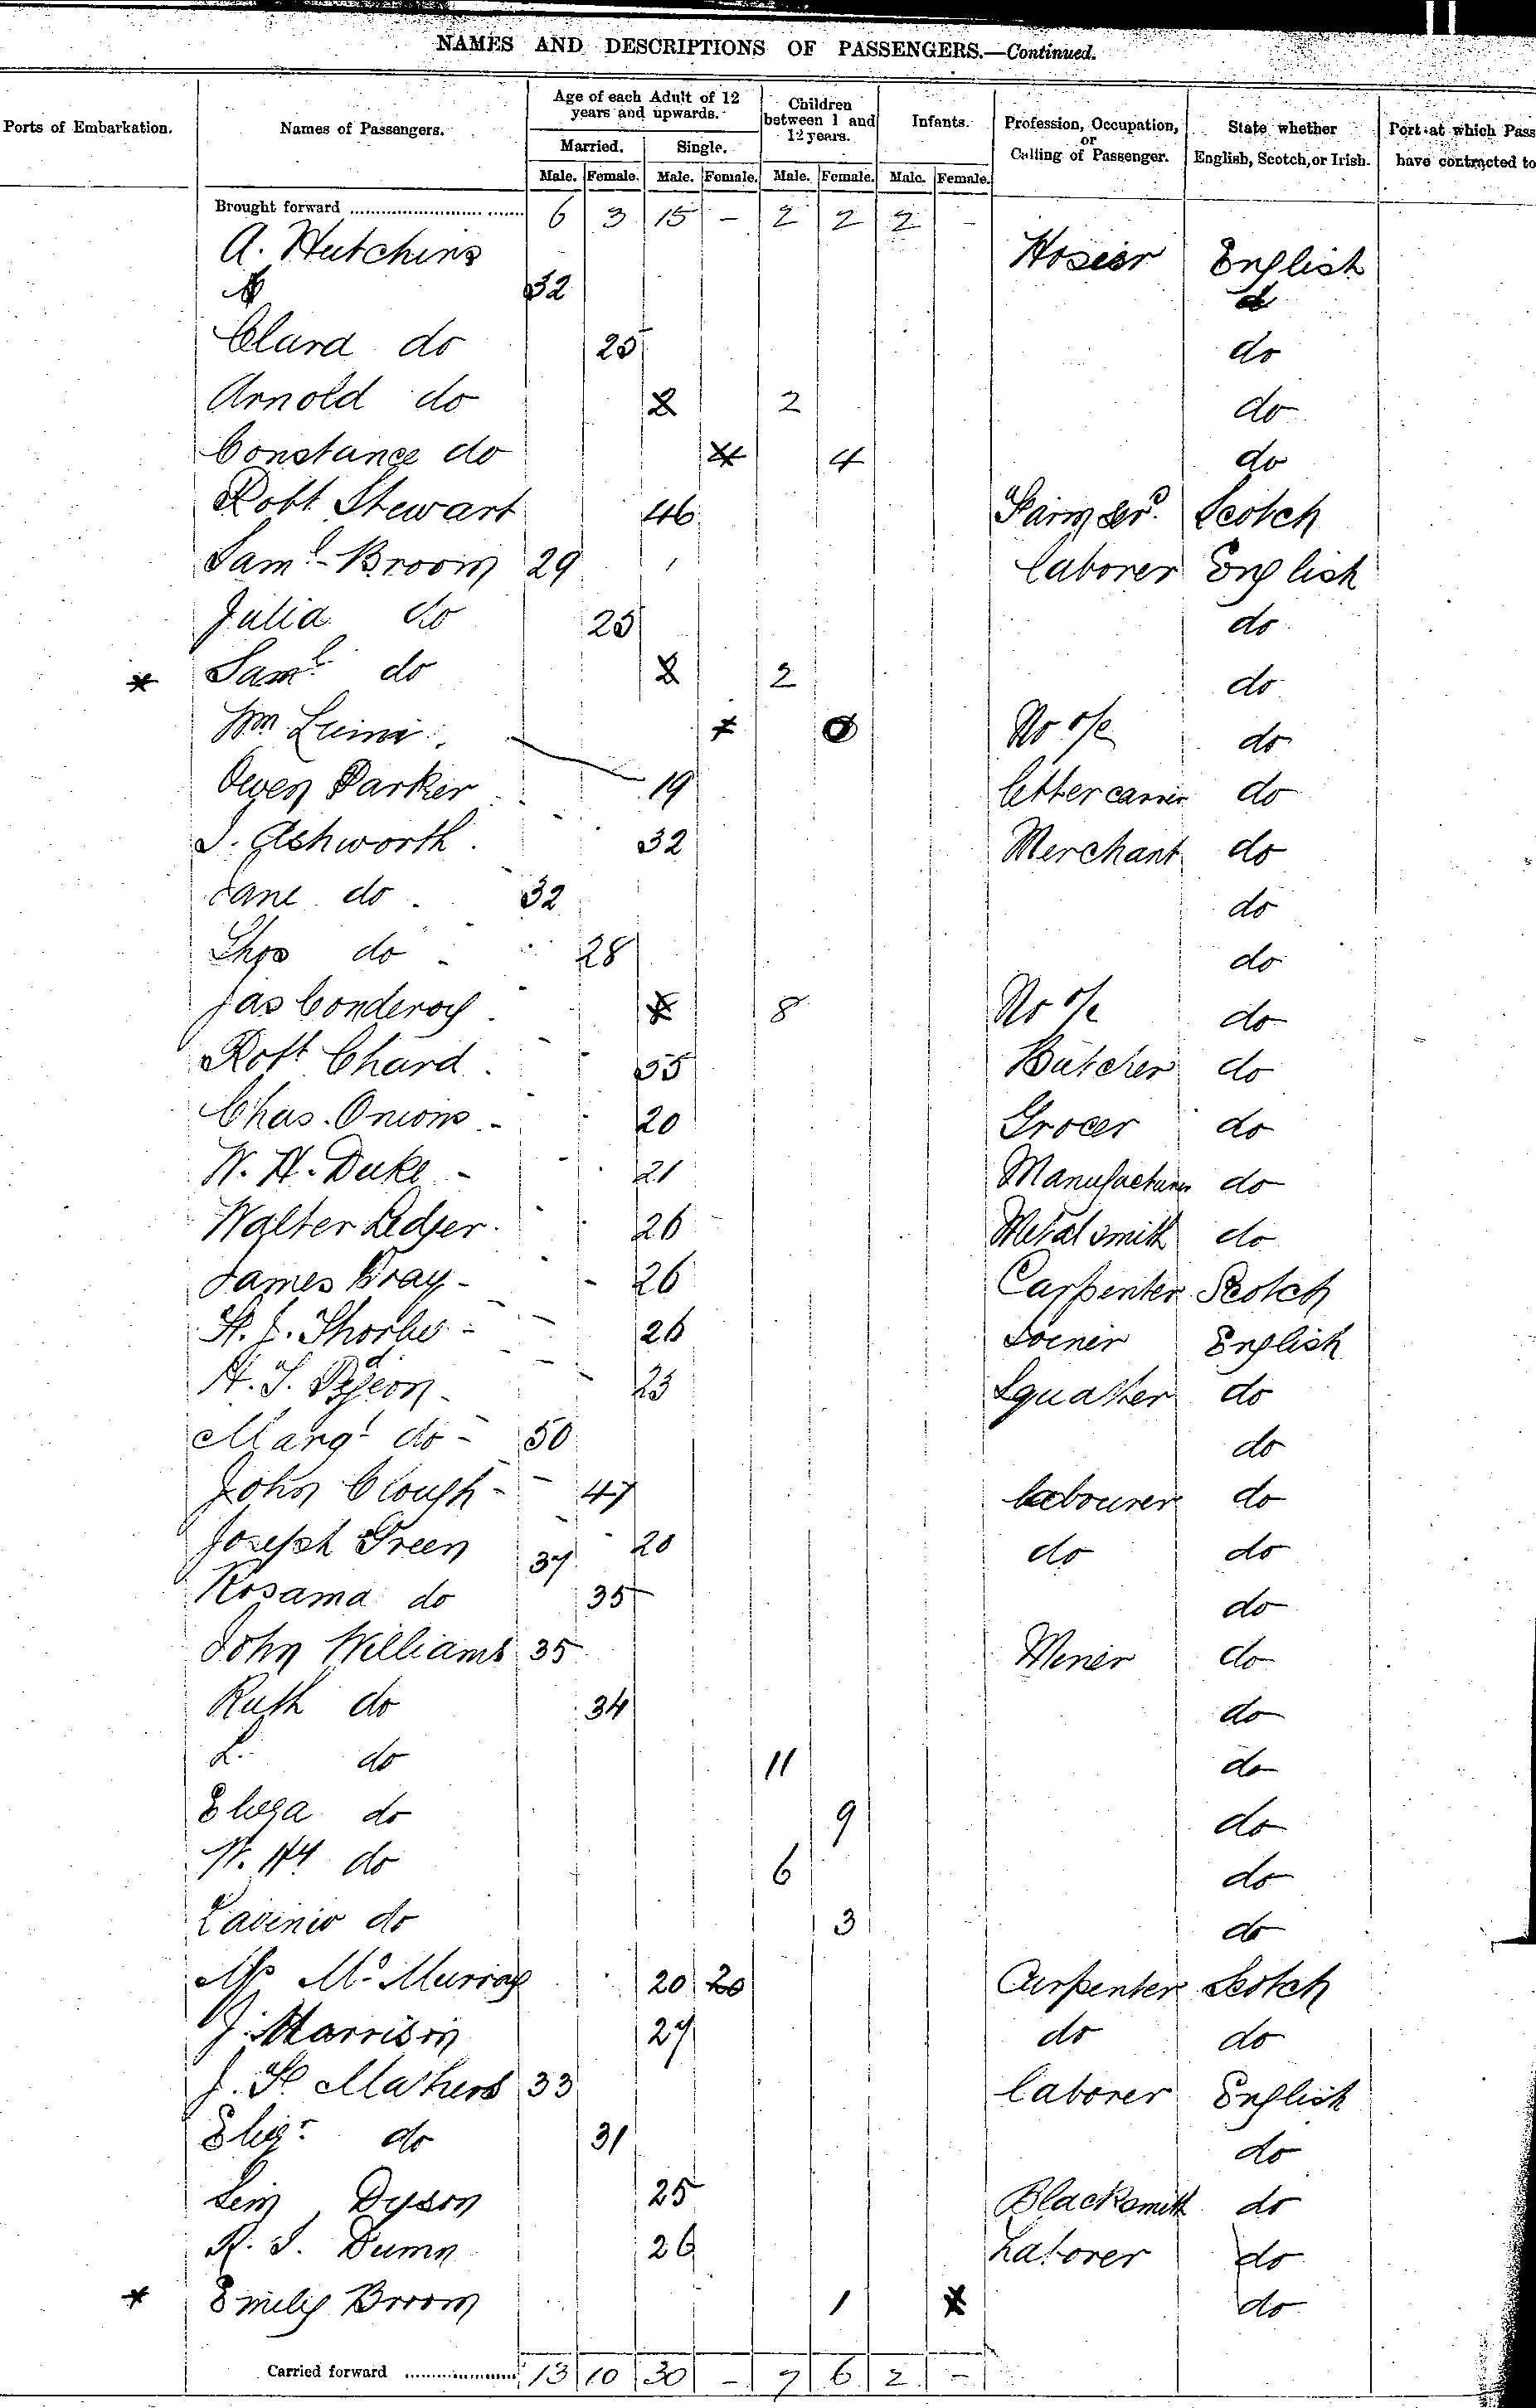 NAMES AND DESCRIPTIONS OF PASSENGERS.—Continued.
Ports of Embarkation. Names of Passengers. Age of each Adult of 12 years and upwards. Married. Male. Female. Single. Male. Female. Children between 1 and 12 years. Male. Female. Infants. Male. Female. Profession, Occupation, or Calling of Passenger. State whether English, Scotch, or Irish. Port at which Pass have contracted to
Brought forward 6 3 15 - 2 2 2 -
A. Hutchins Hosier English
32
Clara do 25 do
Arnold do 2 2 do
Constance do 4 4 do
Robt Stewart 46 Farmer Scotch
Saml Broom 29 laborer English
Julia do 25 do
* Saml do 2 2 do
Wm No o/c do
Owen Parker 19 letter carrier do
J. Ashworth 32 Merchant do
Jane do 32 do
Thos do 28 do
Jas Conderoy 8 No o/c do
Robt Chard 35 Butcher do
Chas. Onions 20 Grocer do
W. H. Duke 21 Manufacturer do
Walter Ledger 26 Metal smith do
James Bray 26 Carpenter Scotch
H. J. Thorby 26 Joiner English
H. S. Pidgeon 23 Squatter do
Margt do 50 do
John Clough 47 labourer do
Joseph Green 37 20 do do
Rosama do 35 do
John Williams 35 Miner do
Ruth do 34 do
L. do 11 do
Eliza do 9 do
W. Hy do 6 do
Lavinia do 3 do
Mc Murray 20 20 Carpenter Scotch
J. Harrison 27 do do
J. H. Mathers 33 laborer English
Elizr do 31 do
Lem Dyson 25 Blacksmith do
R. S. Dumn 26 Laborer do
* Emily Broom 1 do
Carried forward 13 10 30 - 7 6 2 -